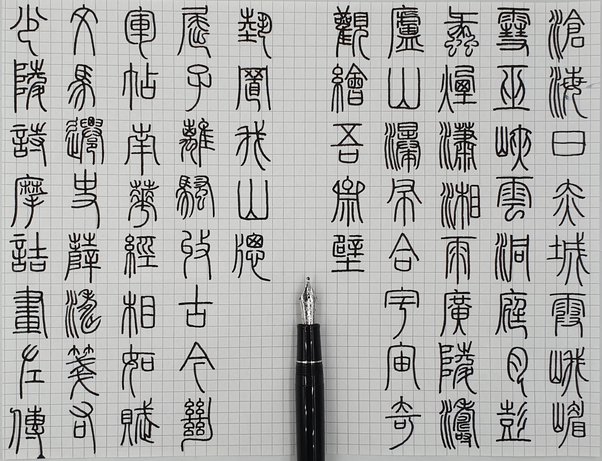 滄海日赤城霞峨嵋
雪巫峽雲洞庭月彭
蠡煙瀟湘雨廣陵濤
廬山瀑布合宇宙奇
觀繪吾齋壁
少陵詩摩詰畫左傳
文馬遷史薛濤箋右
軍帖南華經相如賦
屈子離騷收古今絕
藝置我山窗